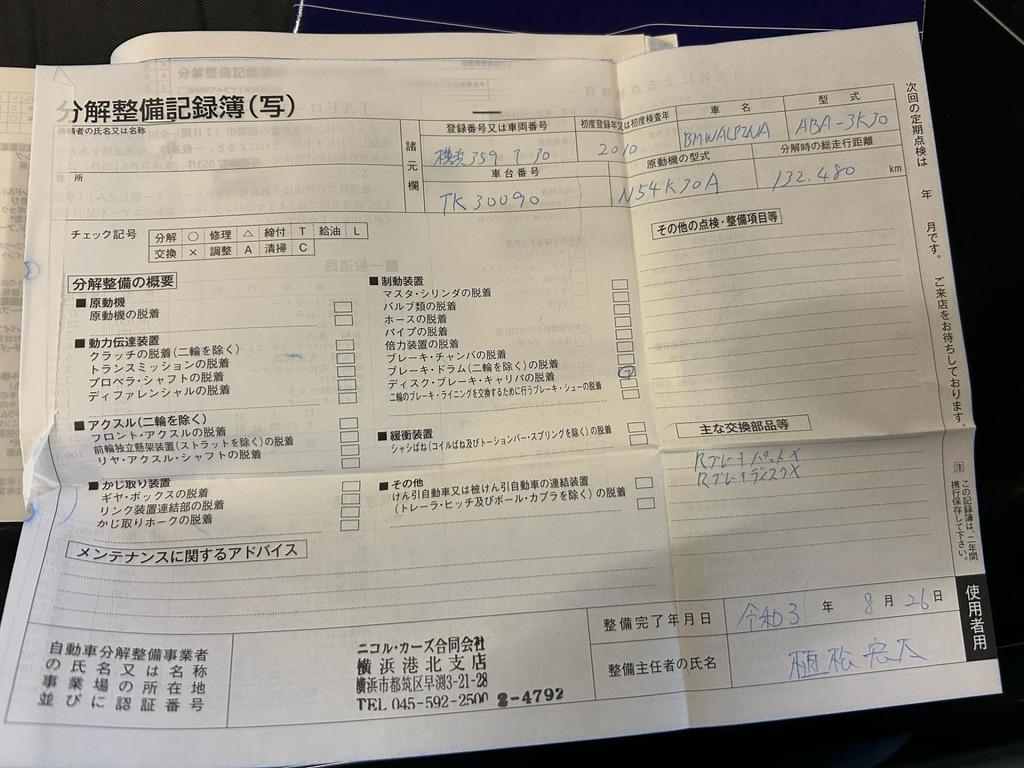 分解整備記録簿(写)
依頼者の氏名又は名称
住所
諸元欄
登録番号又は車両番号
横浜 359 り 30
初度登録年又は初度検査年
2010
車名
BMWALPINA
型式
ABA-3K30
車台番号
TK30090
原動機の型式
N54K30A
分解時の総走行距離
132.480 km
チェック記号
分解 ○ 修理 △ 締付 T 給油 L
交換 × 調整 A 清掃 C
分解整備の概要
■原動機
原動機の脱着
■動力伝達装置
クラッチの脱着(二輪を除く)
トランスミッションの脱着
プロペラ・シャフトの脱着
ディファレンシャルの脱着
■アクスル(二輪を除く)
フロント・アクスルの脱着
前輪独立懸架装置(ストラットを除く)の脱着
リヤ・アクスル・シャフトの脱着
■かじ取り装置
ギヤ・ボックスの脱着
リンク装置連結部の脱着
かじ取りホークの脱着
■制動装置
マスタ・シリンダの脱着
バルブ類の脱着
ホースの脱着
パイプの脱着
倍力装置の脱着
ブレーキ・チャンバの脱着
ブレーキ・ドラム(二輪を除く)の脱着
ディスク・ブレーキ・キャリパの脱着
二輪のブレーキ・ライニングを交換するために行うブレーキ・シューの脱着
■緩衝装置
シャシばね(コイルばね及びトーションバー・スプリングを除く)の脱着
■その他
けん引自動車又は被けん引自動車の連結装置
(トレーラ・ヒッチ及びボール・カプラを除く)の脱着
その他の点検・整備項目等
主な交換部品等
Rブレーキパット×
Rブレーキディスク×
メンテナンスに関するアドバイス
自動車分解整備事業者
の氏名又は名称
事業場の所在地
並びに認証番号
ニコル・カーズ合同会社
横浜港北支店
横浜市都筑区早渕3-21-28
TEL 045-592-2500 2-4792
整備完了年月日
令和3年 8月 26日
整備主任者の氏名
植松宏太
次回の定期点検は 年 月です。ご来店をお待ちしております。
注 この記録簿は、二年間
携行保存して下さい。
使用者用